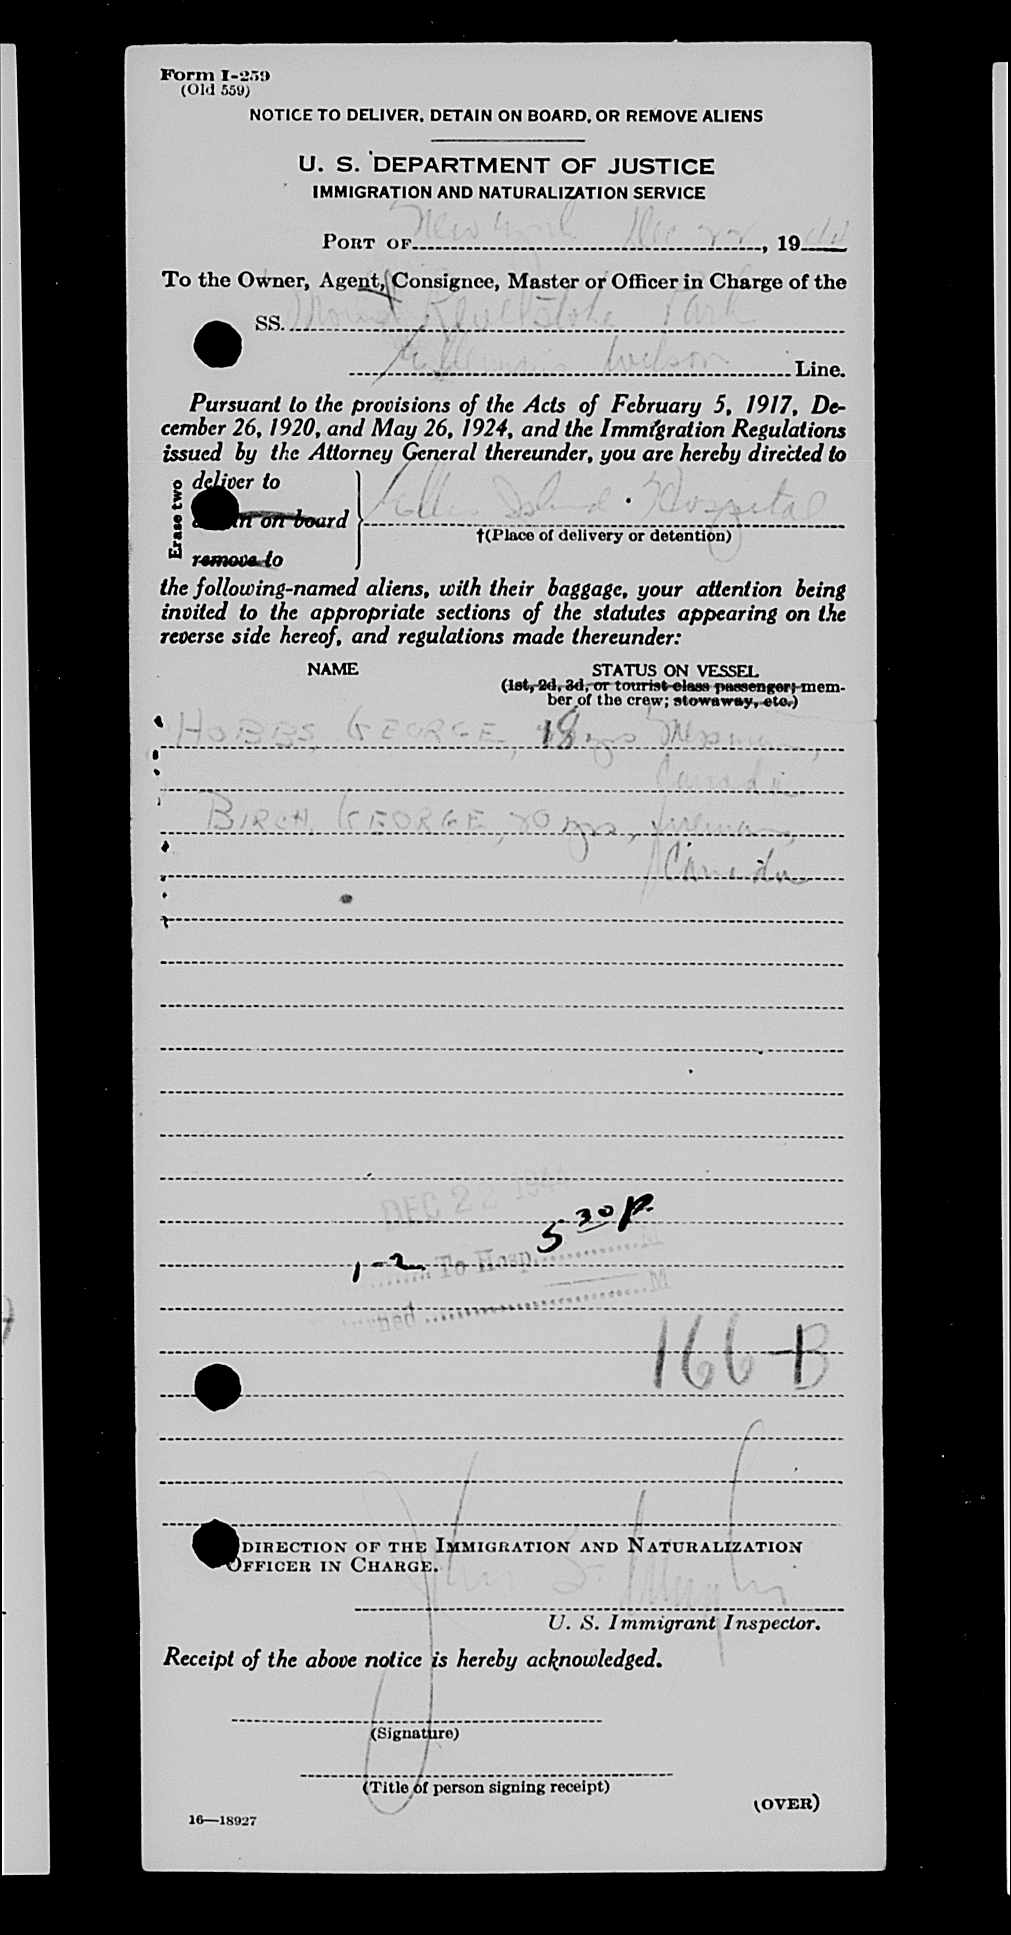 Form I-259
(Old 559)
NOTICE TO DELIVER, DETAIN ON BOARD, OR REMOVE ALIENS
U. S. DEPARTMENT OF JUSTICE
IMMIGRATION AND NATURALIZATION SERVICE
PORT OF New York Dec 22, 1944
To the Owner, Agent, Consignee, Master or Officer in Charge of the
SS. Mount Revelstoke Park
Wilson Line.
Pursuant to the provisions of the Acts of February 5, 1917, De-
cember 26, 1920, and May 26, 1924, and the Immigration Regulations
issued by the Attorney General thereunder, you are hereby directed to
Erase two
deliver to
on board
Ellis Island Hospital
remove to
†(Place of delivery or detention)
the following-named aliens, with their baggage, your attention being
invited to the appropriate sections of the statutes appearing on the
reverse side hereof, and regulations made thereunder:
NAME STATUS ON VESSEL
(1st, 2d, 3d, or tourist class passenger; mem-
ber of the crew; stowaway, etc.)
HOBBS, GEORGE, 18 yrs Messman,
Canada
BIRCH, GEORGE, 20 yrs, fireman,
Canada
DEC 22 1944
5 30 P.
1-2 To Hosp. M
M
166-B
DIRECTION OF THE IMMIGRATION AND NATURALIZATION
OFFICER IN CHARGE.
John
U. S. Immigrant Inspector.
Receipt of the above notice is hereby acknowledged.
(Signature)
(Title of person signing receipt)
(OVER)
16—18927